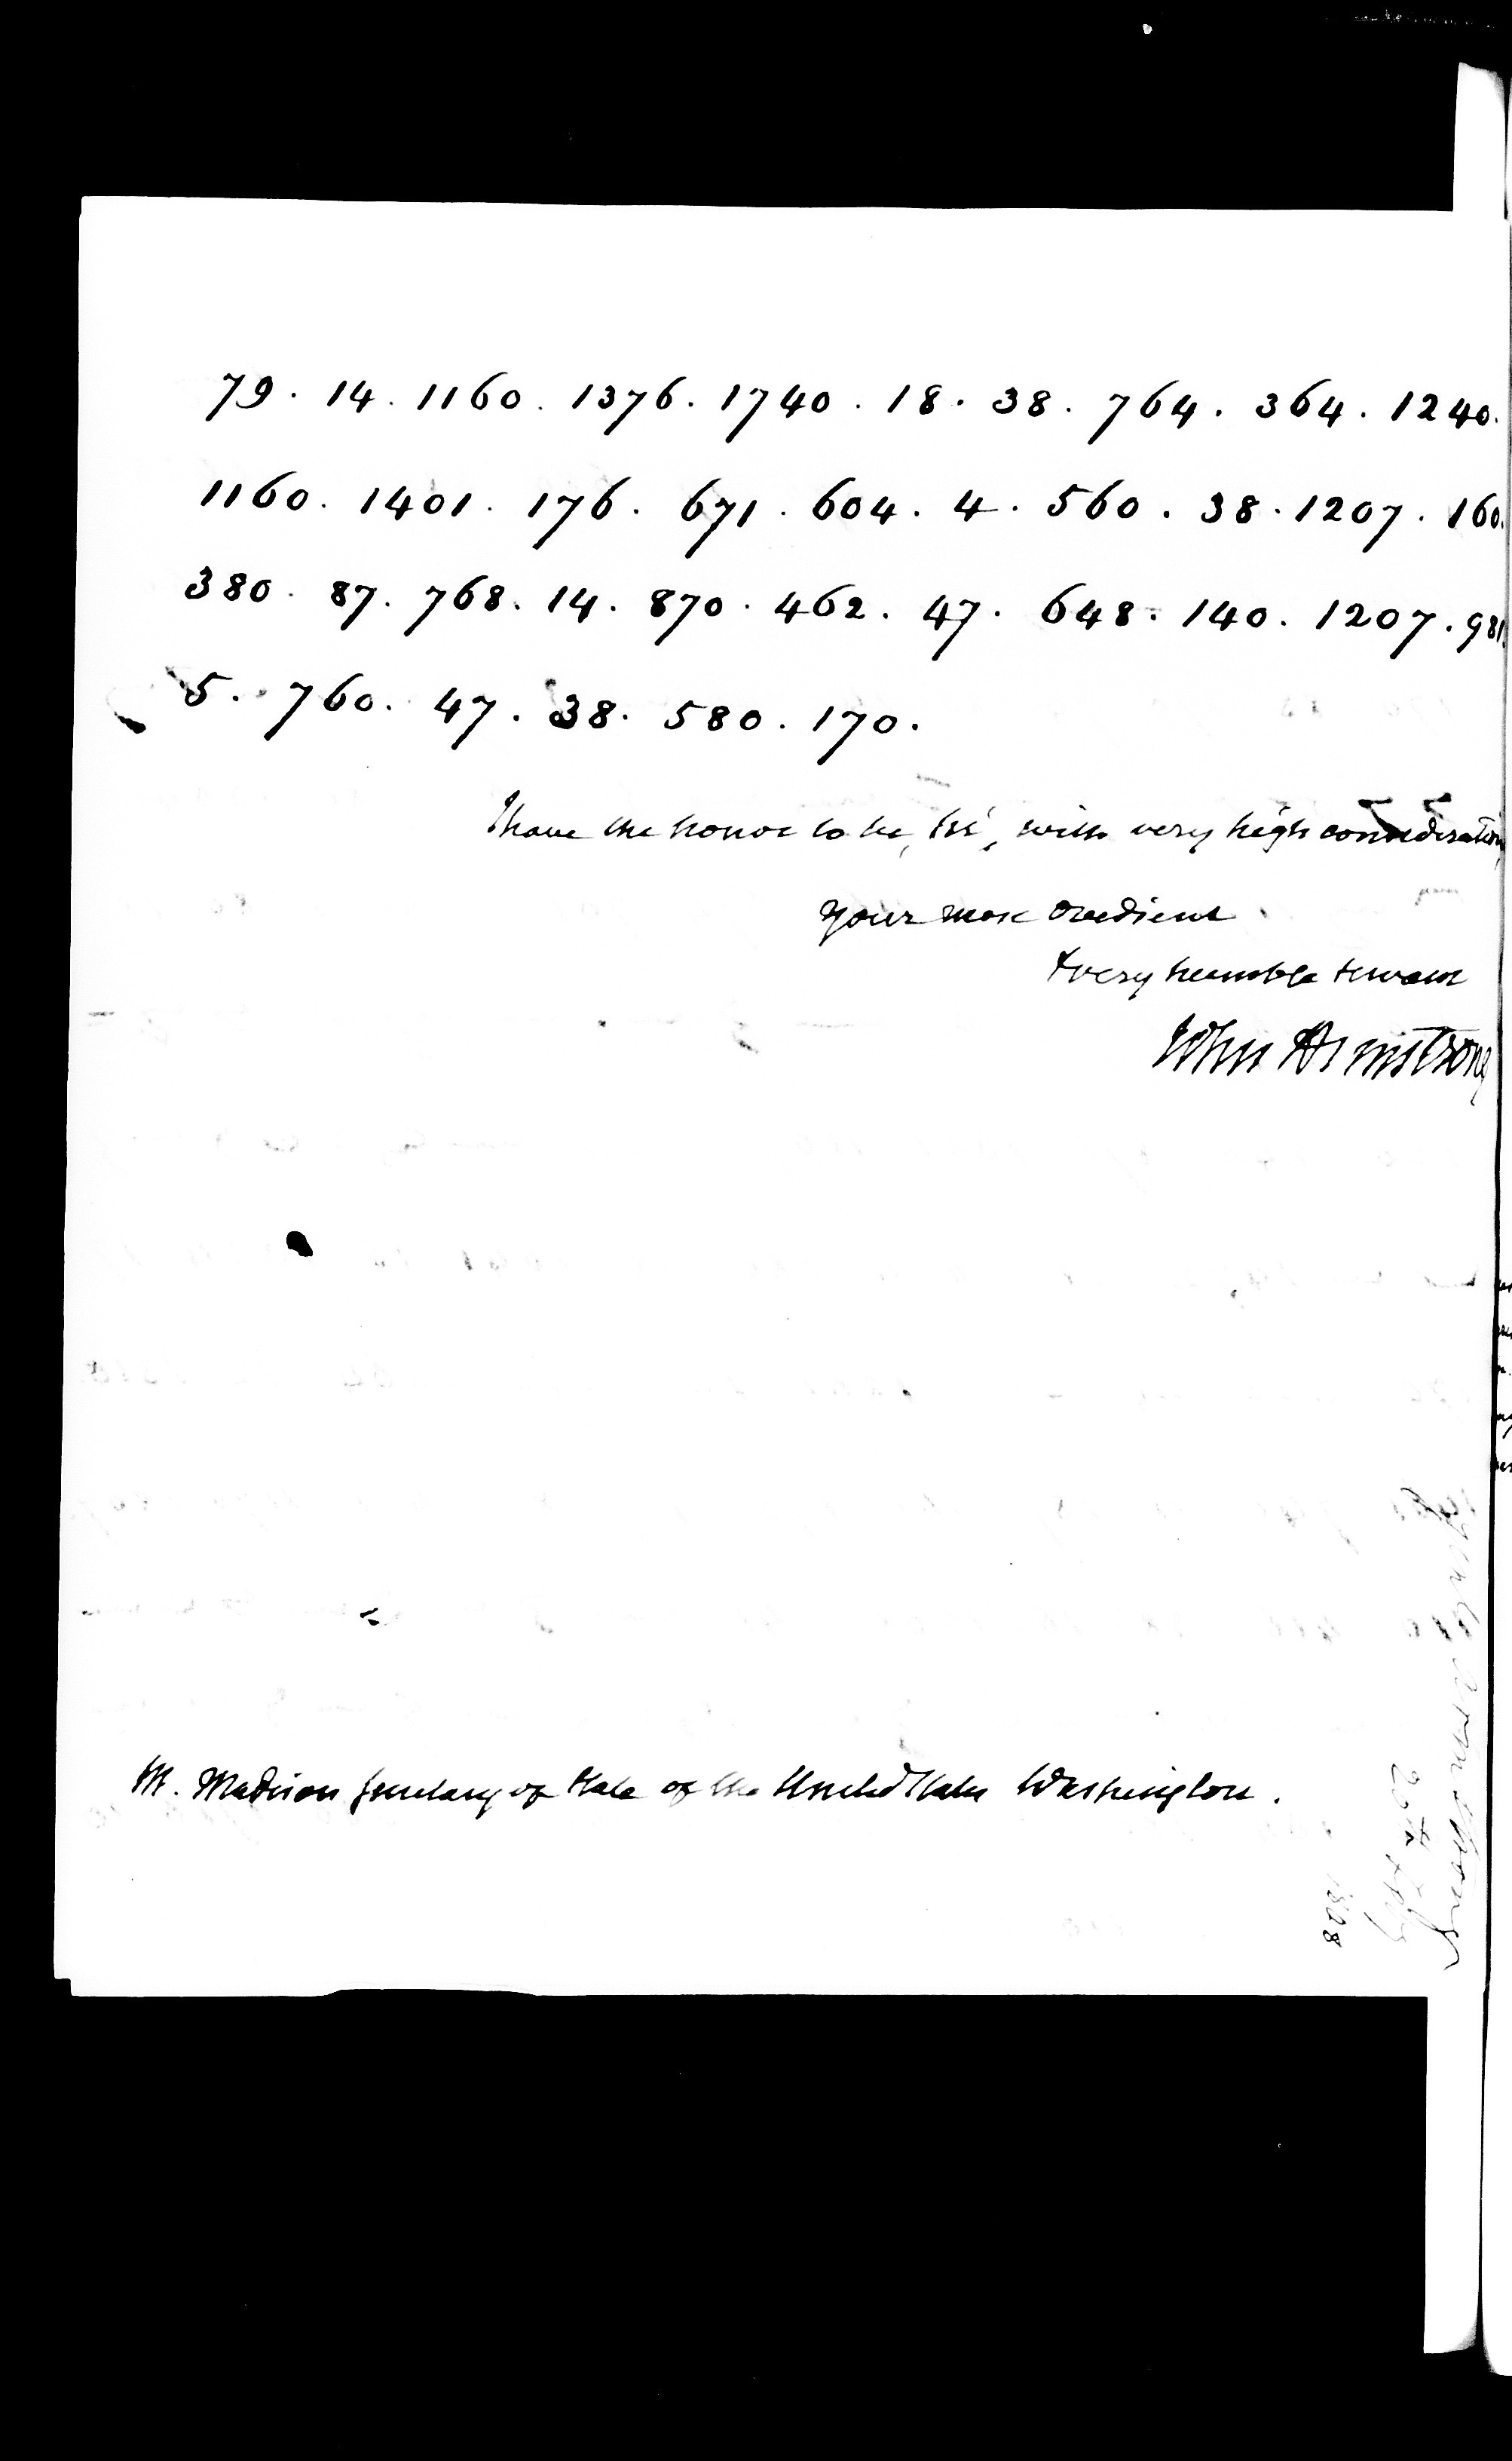 79. 14. 1160. 1376. 1740. 18. 38. 764. 364. 1240.
1160. 1401. 176. 671. 604. 4. 560. 38. 1207. 160.
380. 87. 768. 14. 870. 462. 47. 648. 140. 1207. 981.
5. 760. 47. 38. 580. 170.
I have the honor to be, Sir, with very high consideration,
your most obedient
& very humble servant
John Armstrong
Mr. Madison Secretary of State of the United States Washington.
1808